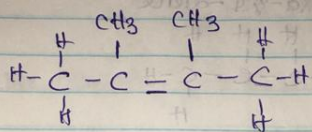 CH3 CH3
H H
H - C - C = C - C - H
H H